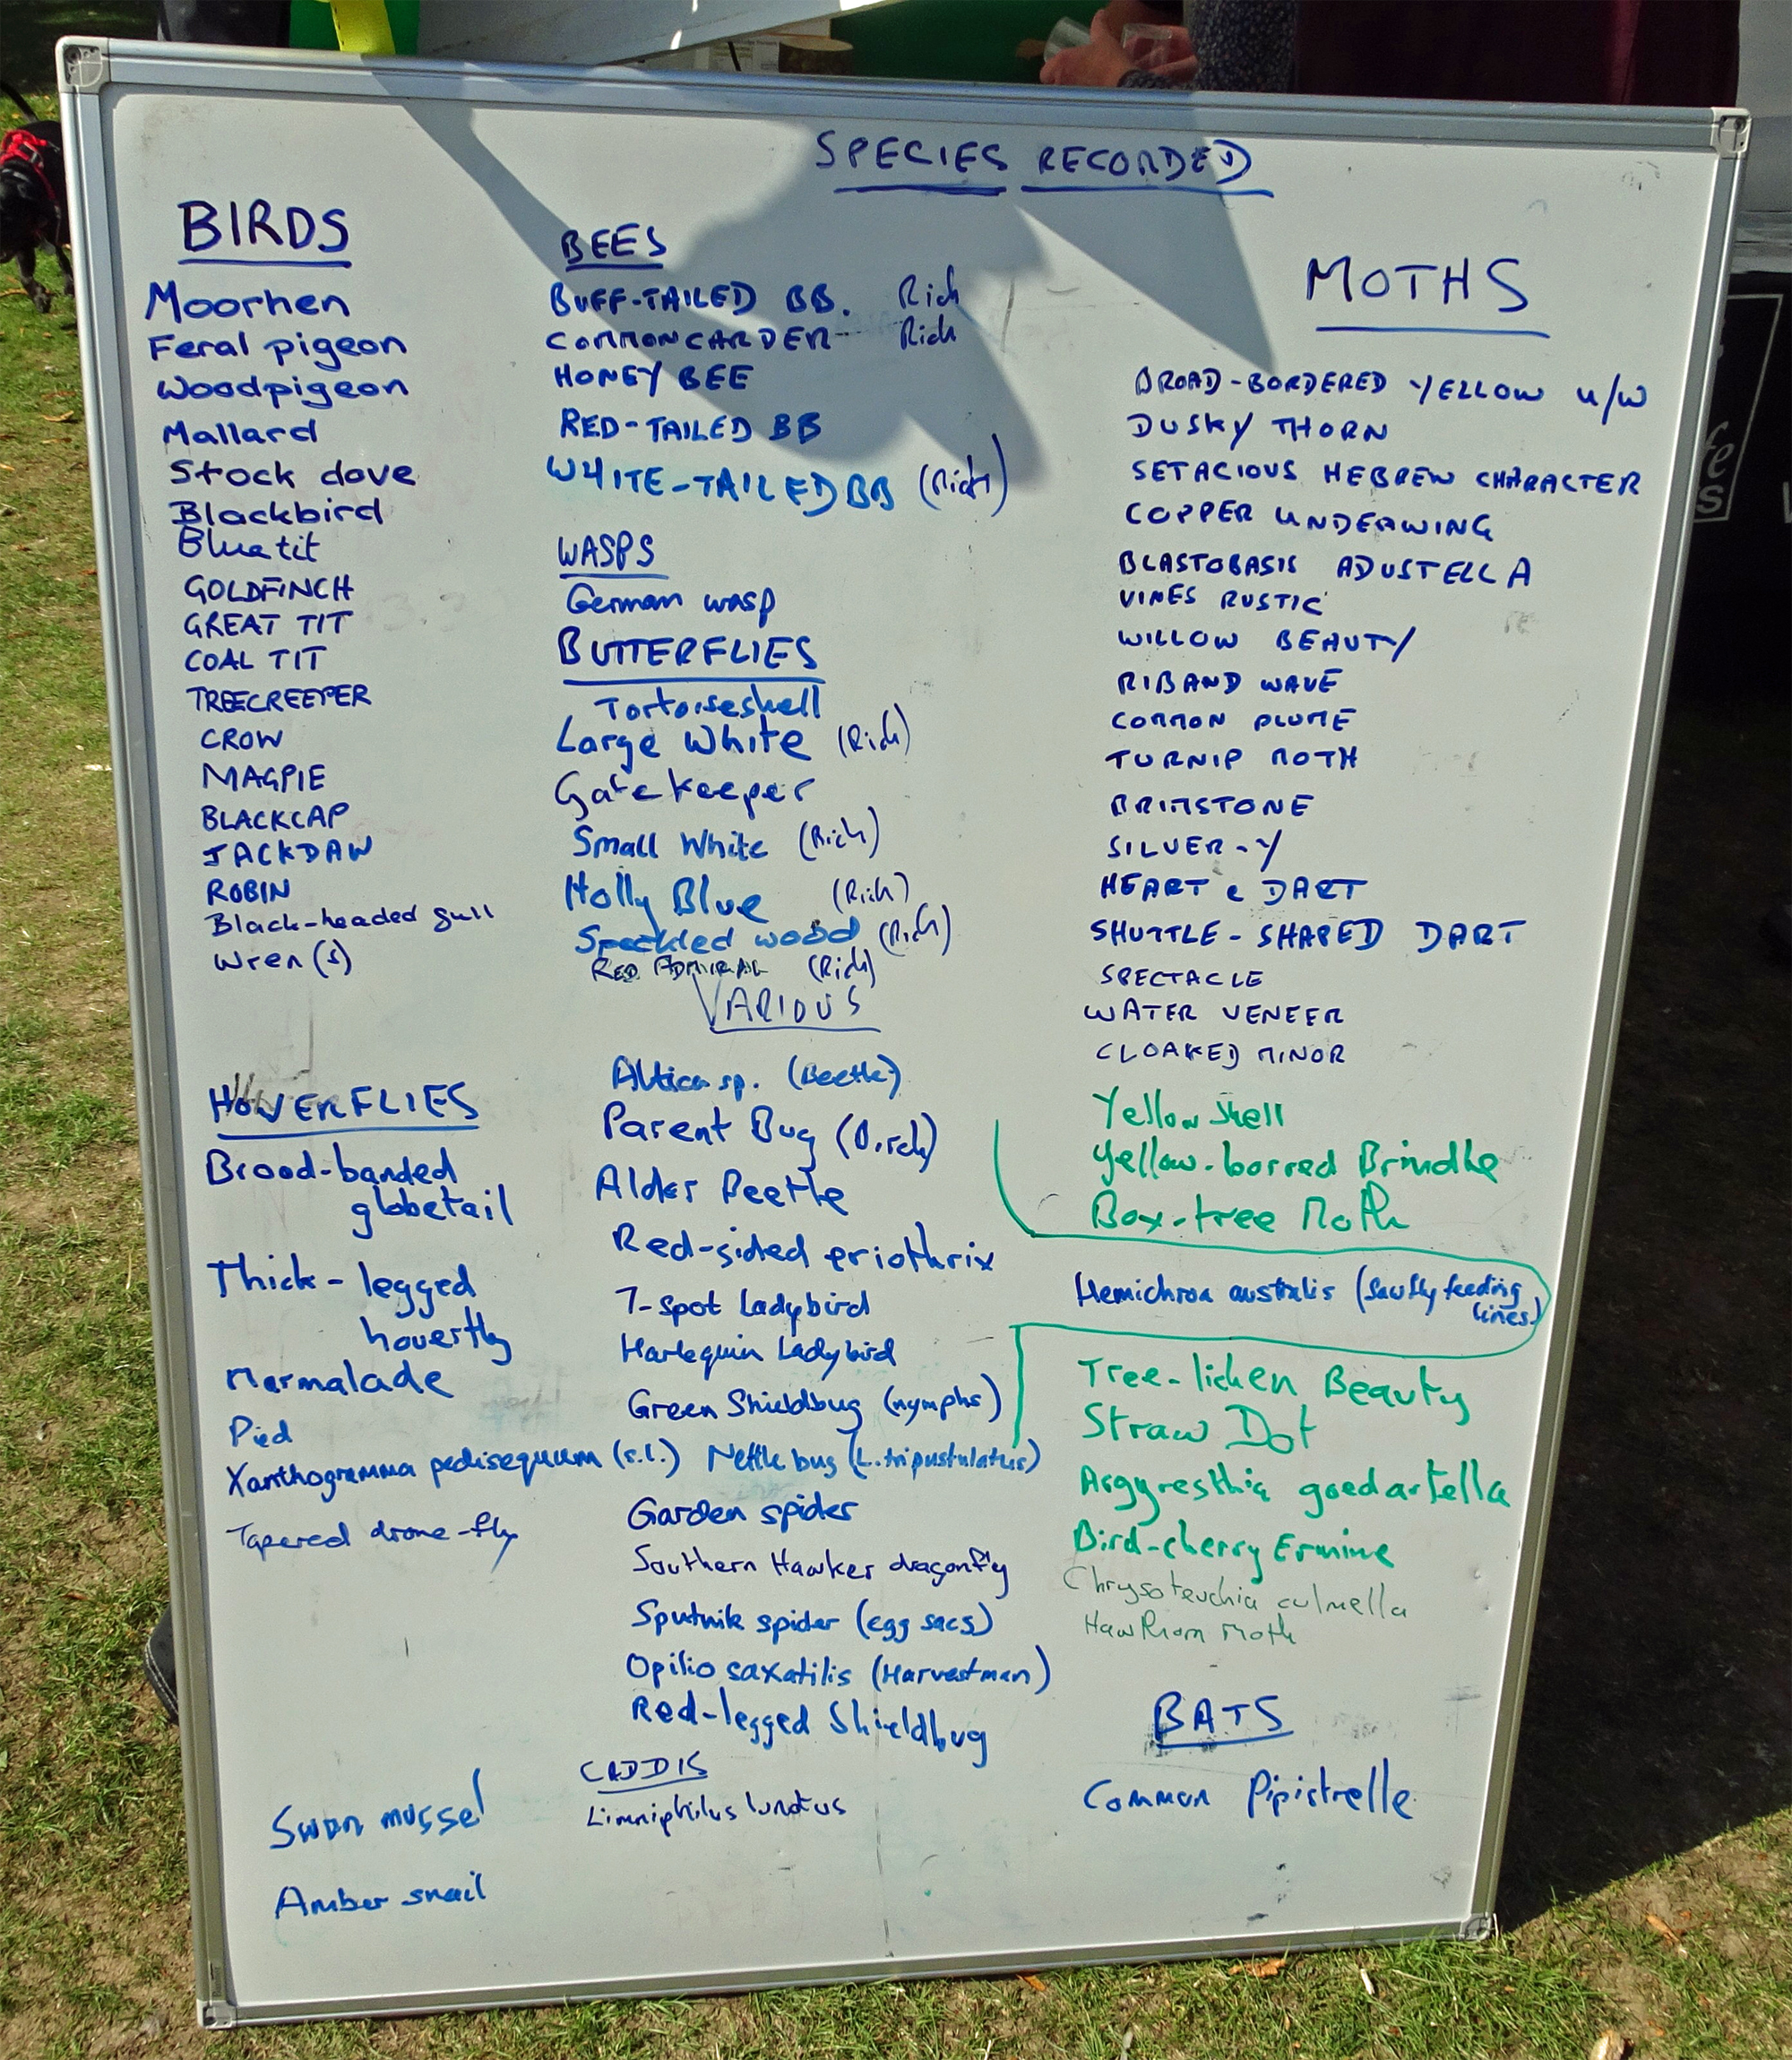 SPECIES RECORDED
BIRDS
Moorhen
Feral pigeon
Woodpigeon
Mallard
Stock dove
Blackbird
Bluetit
GOLDFINCH
GREAT TIT
COAL TIT
TREECREEPER
CROW
MAGPIE
BLACKCAP
JACKDAW
ROBIN
Black-headed gull
Wren(s)
HOVERFLIES
Broad-banded
globetail
Thick-legged
hoverfly
Marmalade
Pied
Xanthogramma pedisequum (s.l.)
Tapered drone-fly
Swan mussel
Amber snail
BEES
BUFF-TAILED BB. Rich
COMMON CARDER Rich
HONEY BEE
RED-TAILED BB
WHITE-TAILED BB (Rich)
WASPS
German wasp
BUTTERFLIES
Tortoiseshell
Large White (Rich)
Gatekeeper
Small White (Rich)
Holly Blue (Rich)
Speckled wood (Rich)
RED ADMIRAL (Rich)
VARIOUS
Altica sp. (Beetle)
Parent Bug (Birch)
Alder Beetle
Red-sided eriothrix
7-spot Ladybird
Harlequin Ladybird
Green Shieldbug (nymphs)
Nettle bug (L. tripustulatus)
Garden spider
Southern Hawker dragonfly
Sputnik spider (egg sacs)
Opilio saxatilis (Harvestman)
Red-legged Shieldbug
CADDIS
Limniphilus lunatus
MOTHS
BROAD-BORDERED YELLOW U/W
DUSKY THORN
SETACIOUS HEBREW CHARACTER
COPPER UNDERWING
BLASTOBASIS ADUSTELLA
VINES RUSTIC
WILLOW BEAUTY
RIBAND WAVE
COMMON PLUME
TURNIP MOTH
BRIMSTONE
SILVER-Y
HEART & DART
SHUTTLE-SHAPED DART
SPECTACLE
WATER VENEER
CLOAKED MINOR
Yellow shell
Yellow-barred Brindle
Box-tree Moth
Hemichroa australis (Sawfly feeding
lines)
Tree-lichen Beauty
Straw Dot
Argyresthia goedartella
Bird-cherry Ermine
Chrysoteuchia culmella
Hawthorn Moth
BATS
Common Pipistrelle